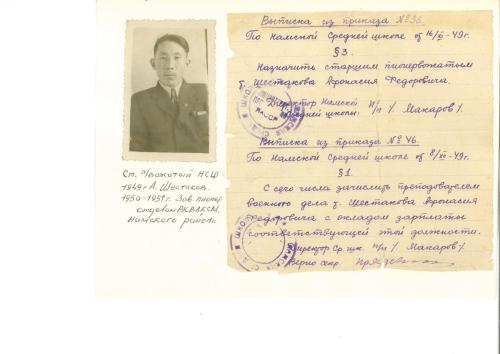 Выписка из приказа №36.
По Намской Средней школе от 16/XI-49г.
§3.
Назначить старшим пионервожатым
т. Шестакова Афонасия Федоровича.
Директор Намской п/п / Макаров /.
Средней школы:
Выписка из приказа №46.
По Намской Средней школе от 8/XI-49г
§1.
С сего числа зачислить преподавателем
военного дела т. Шестакова Афонасия
Федоровича с окладом зарплаты
соответствующей этой должности.
Директор Ср. шк. п/п / Макаров /.
Верно секр.
Ст. п/вожатый НСШ
1949г А. Шестаков.
1950-1951г. Зав. пионер
отделом РКВЛКСМ,
Намского района